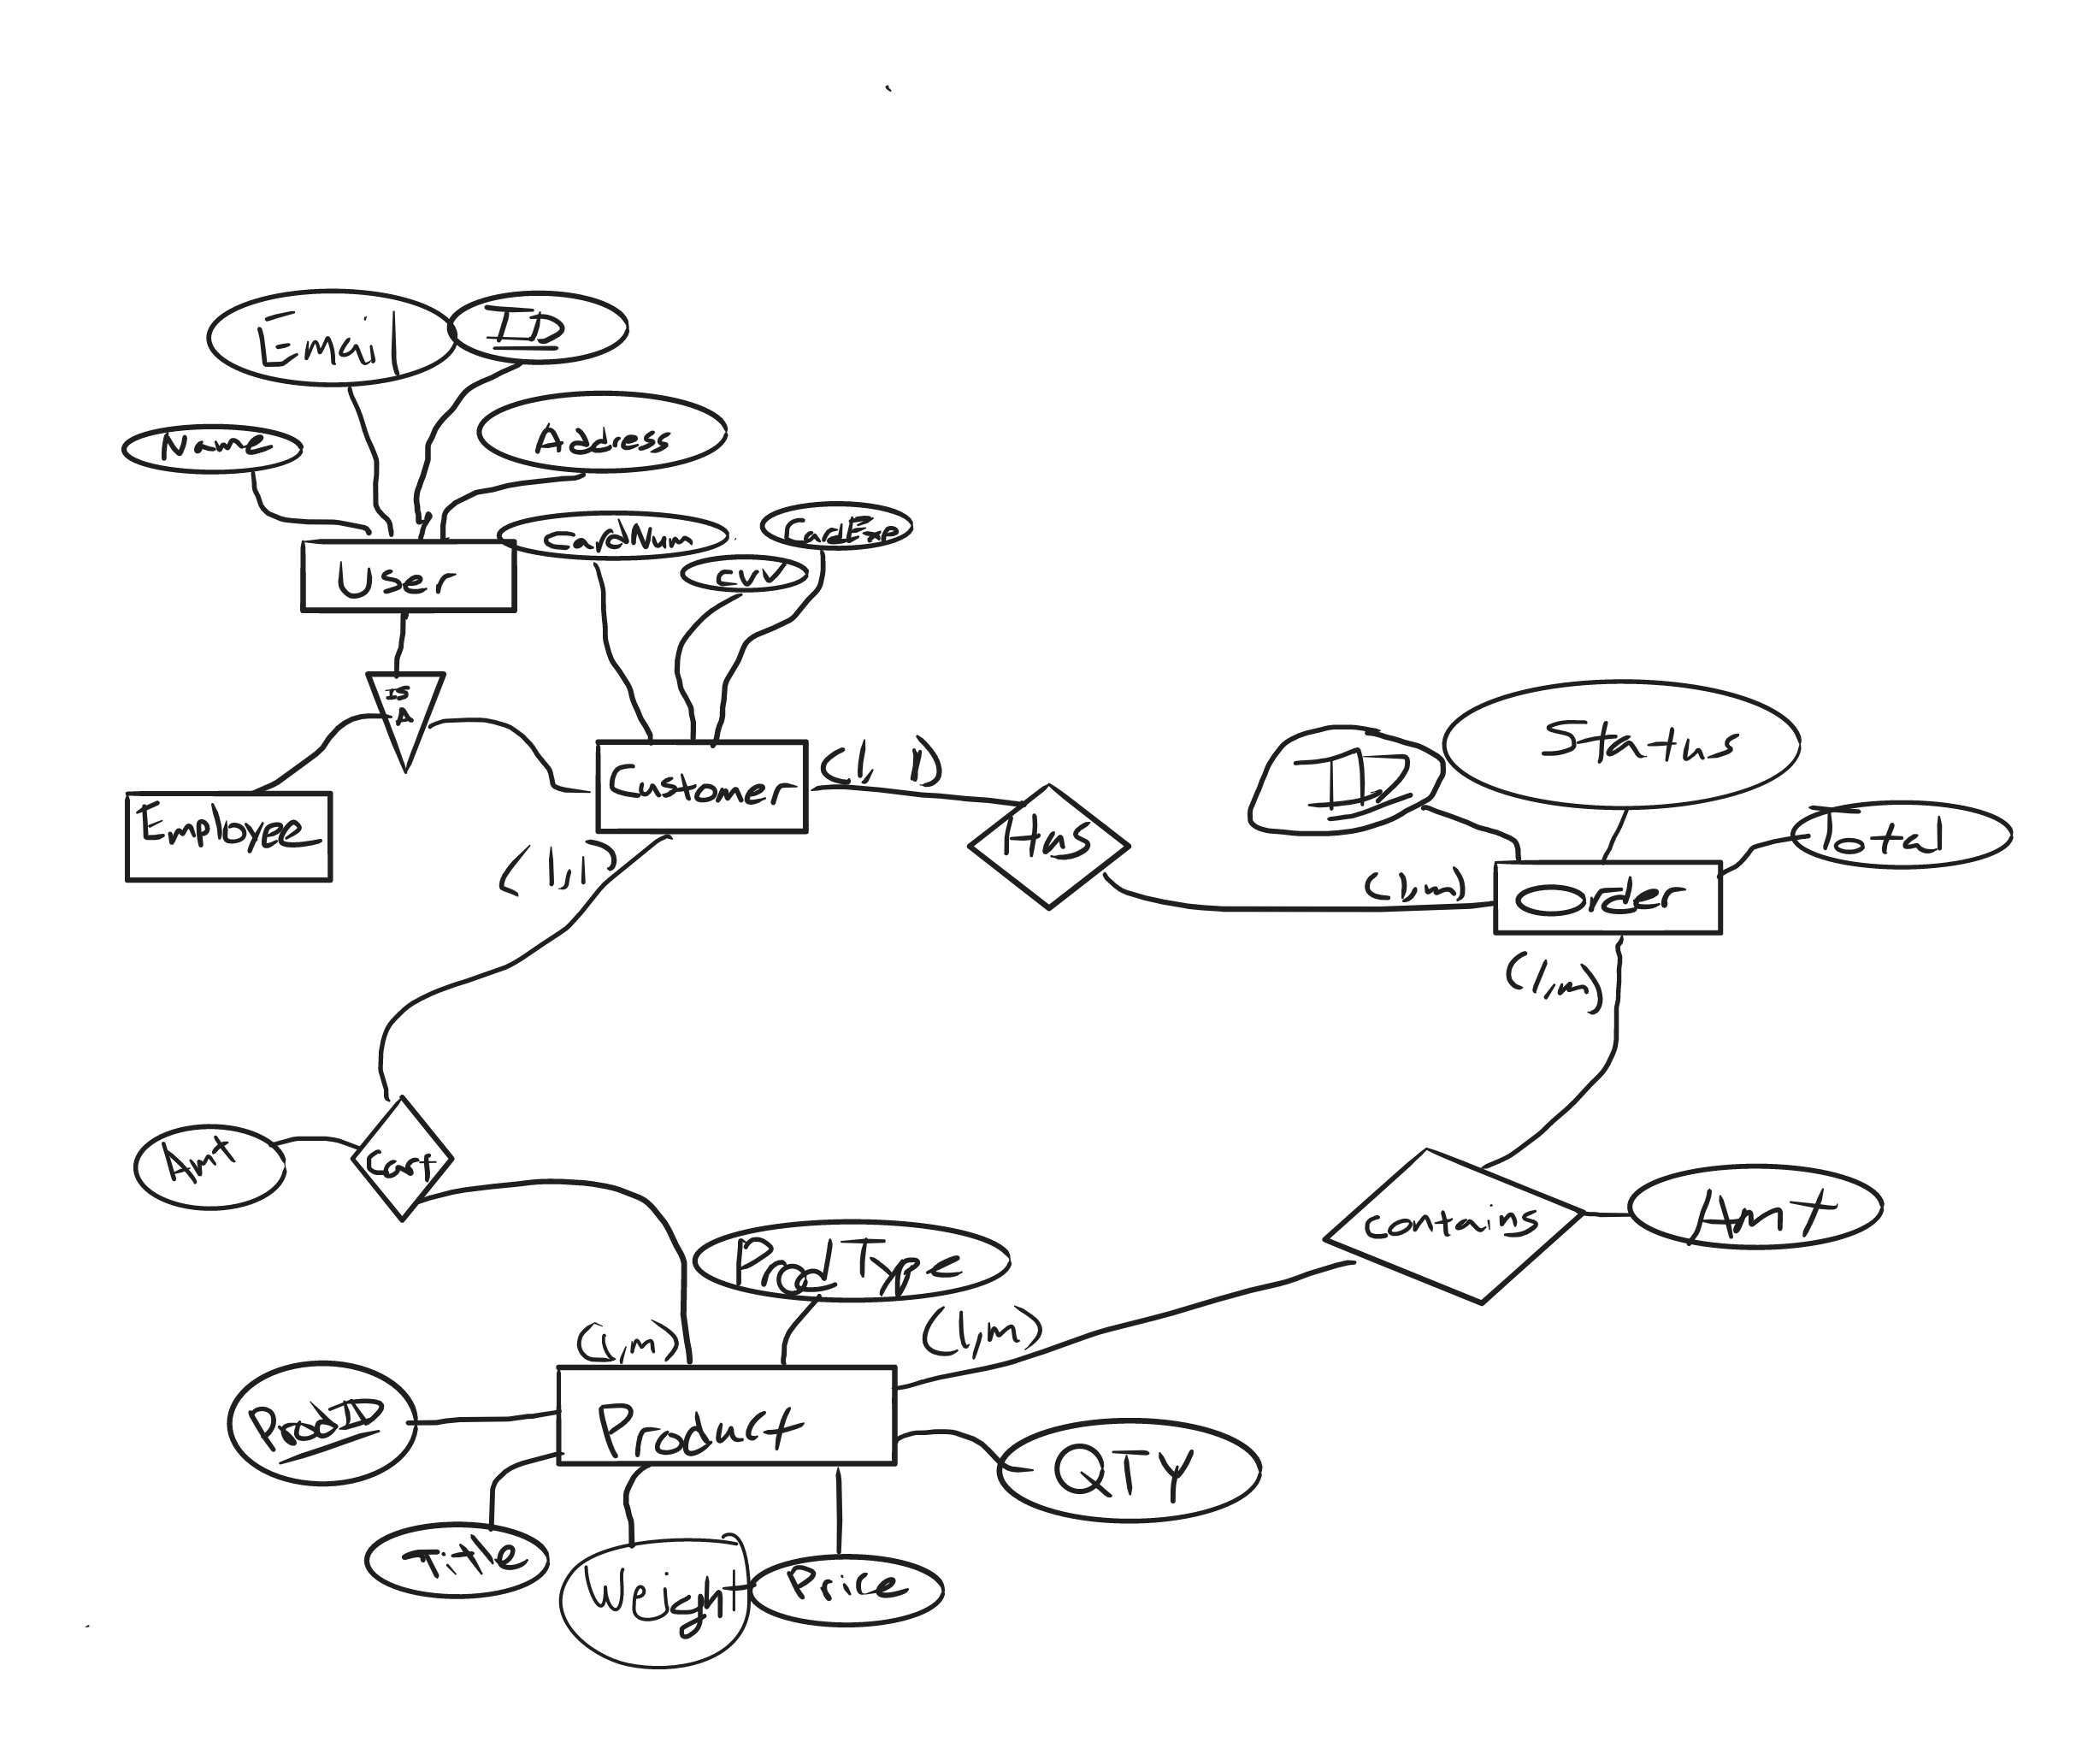 Email
ID
Address
Name
CardNum
CardExp
CVV
User
IS
A
Customer
(1,1)
Employee
Has
ID
Status
Total
(1,m)
Order
(1,1)
(1,m)
Amt
Cart
contains
Amt
ProdType
(1,m)
(1,m)
ProdID
Product
QTY
Title
Weight
Price